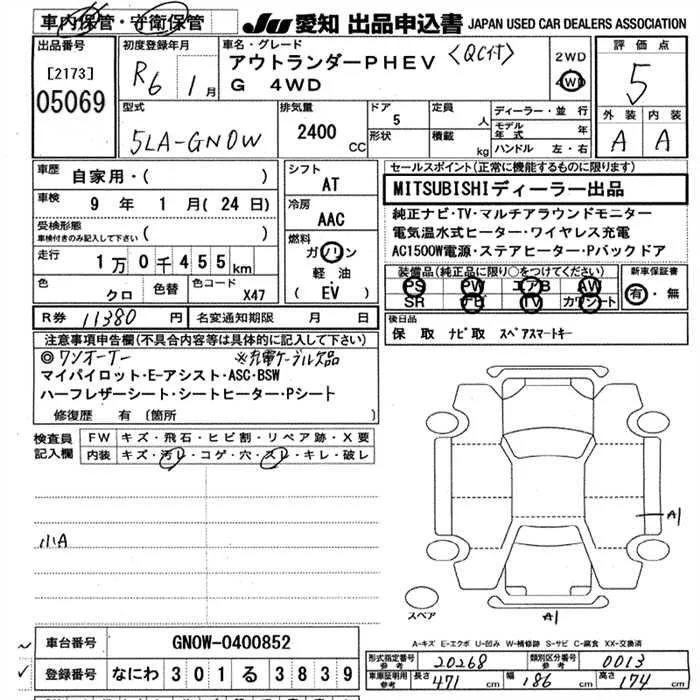 車内保管・守衛保管
JU 愛知 出品申込書 JAPAN USED CAR DEALERS ASSOCIATION
出品番号
[2173]
05069
初度登録年月
R6 1月
車名・グレード
アウトランダーPHEV 〈QC付〉
G 4WD
2WD
4WD
評価点
5
外装 内装
A A
型式
5LA-GN0W
排気量
2400 CC
ドア
5
形状
定員
人
積載
kg
ディーラー・並行
モデル年式 年
ハンドル 左・右
車歴
自家用・( )
車検
9 年 1 月( 24 日)
受検形態
車検付きのみ記入して下さい ( )
走行
1万0千455km
色
クロ
色替
色コード
X47
シフト
AT
冷房
AAC
燃料
ガソリン
軽油
( EV )
セールスポイント(正常に機能するものに限ります)
MITSUBISHIディーラー出品
純正ナビ・TV・マルチアラウンドモニター
電気温水式ヒーター・ワイヤレス充電
AC1500W電源・ステアヒーター・Pバックドア
装備品(純正品に限り○をつけてください)
PS PW エアB AW
SR ナビ TV カワシート
新車保証書
有・無
R券 11380 円
名変通知期限 月 日
後日品
保 取 ナビ取 スペアスマートキー
注意事項申告欄(不具合内容等は具体的に記入して下さい)
◎ワンオーナー ※充電ケーブル欠品
マイパイロット・E-アシスト・ASC・BSW
ハーフレザーシート・シートヒーター・Pシート
修復歴 有 (箇所 )
検査員記入欄
FW キズ・飛石・ヒビ割・リペア跡・X要
内装 キズ・汚レ・コゲ・穴・スレ・キレ・破レ
小A
A1
スペア
A1
A-キズ E-エクボ U-凹み W-補修跡 S-サビ C-腐食 XX-交換済
車台番号 GN0W-0400852
登録番号 なにわ 301 る 3839
形式指定番号 参考 20268
類別区分番号 参考 0013
車庫証明用 参考 長さ 471 cm 幅 186 cm 高さ 174 cm